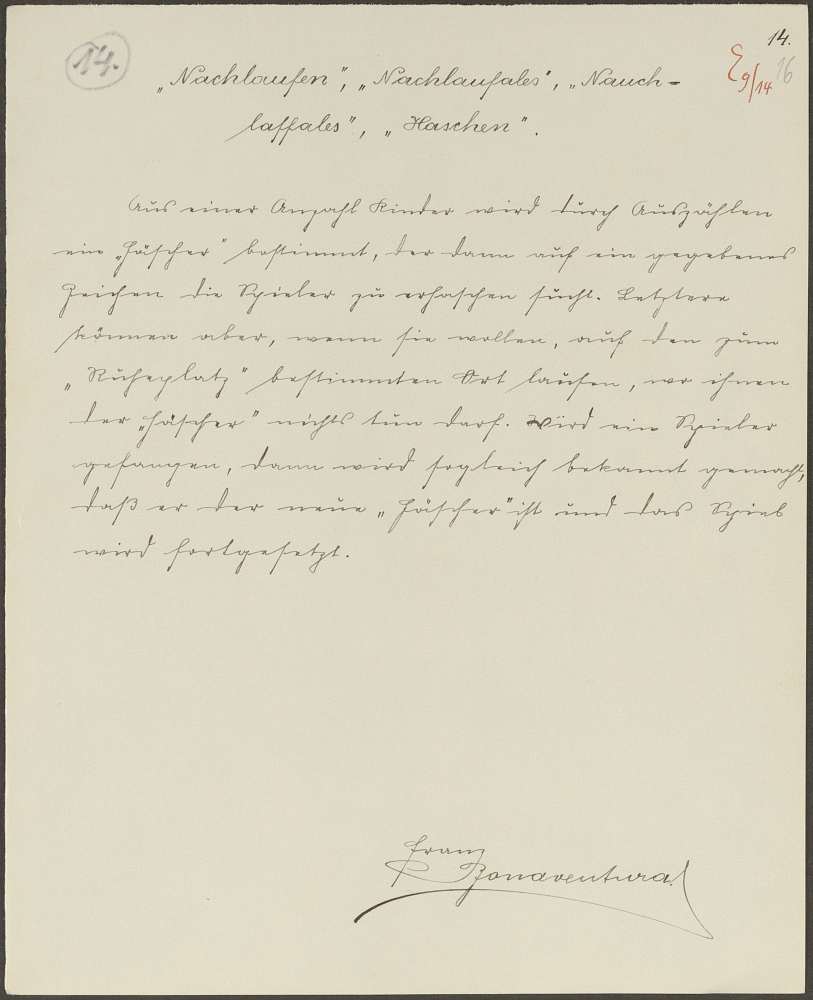 14.
14.
E 9/14 16
„Nachlaufen“, „Nachlaufales“, „Nauch-
laffales“, „Haschen“.
Aus einer Anzahl Kinder wird durch Auszählen
ein „Häscher“ bestimmt, der dann auf ein gegebenes
Zeichen die Spieler zu erhaschen sucht. Letztere
können aber, wenn sie wollen, auf den zum
„Ruheplatz“ bestimmten Ort laufen, wo ihnen
der „Häscher“ nichts tun darf. Wird ein Spieler
gefangen, dann wird sogleich bekannt gemacht,
daß er der neue „Häscher“ ist und das Spiel
wird fortgesetzt.
Franz
Bonaventura